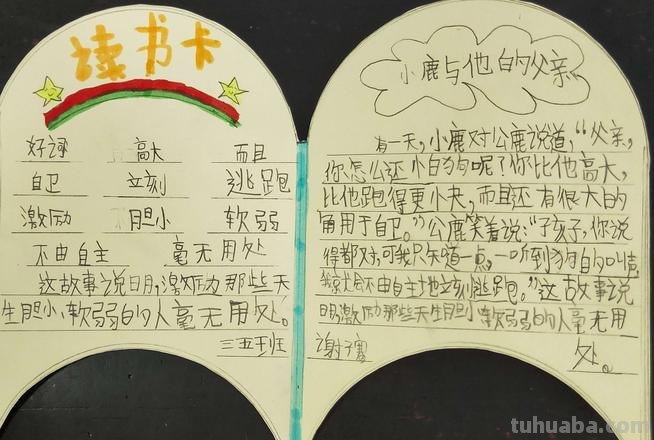 读书卡
好词 高大 而且
自卫 立刻 逃跑
激励 胆小 软弱
不由自主 毫无用处
这故事说明,激励那些天
生胆小、软弱的人毫无用处。
三五班
小鹿与他的父亲
有一天,小鹿对公鹿说道,“父亲,
你怎么还小白狗呢?你比他高大,
比他跑得更小夬,而且还有很大的
角用于自卫。”公鹿笑着说:“子孩子,你说
得都对,可我只知道一点,一听到狗的叫声
我就会不由自主地立刻逃跑。”这故事说
明激励那些天生胆小、软弱的人毫无用
处。
谢子
tuhuaba.com